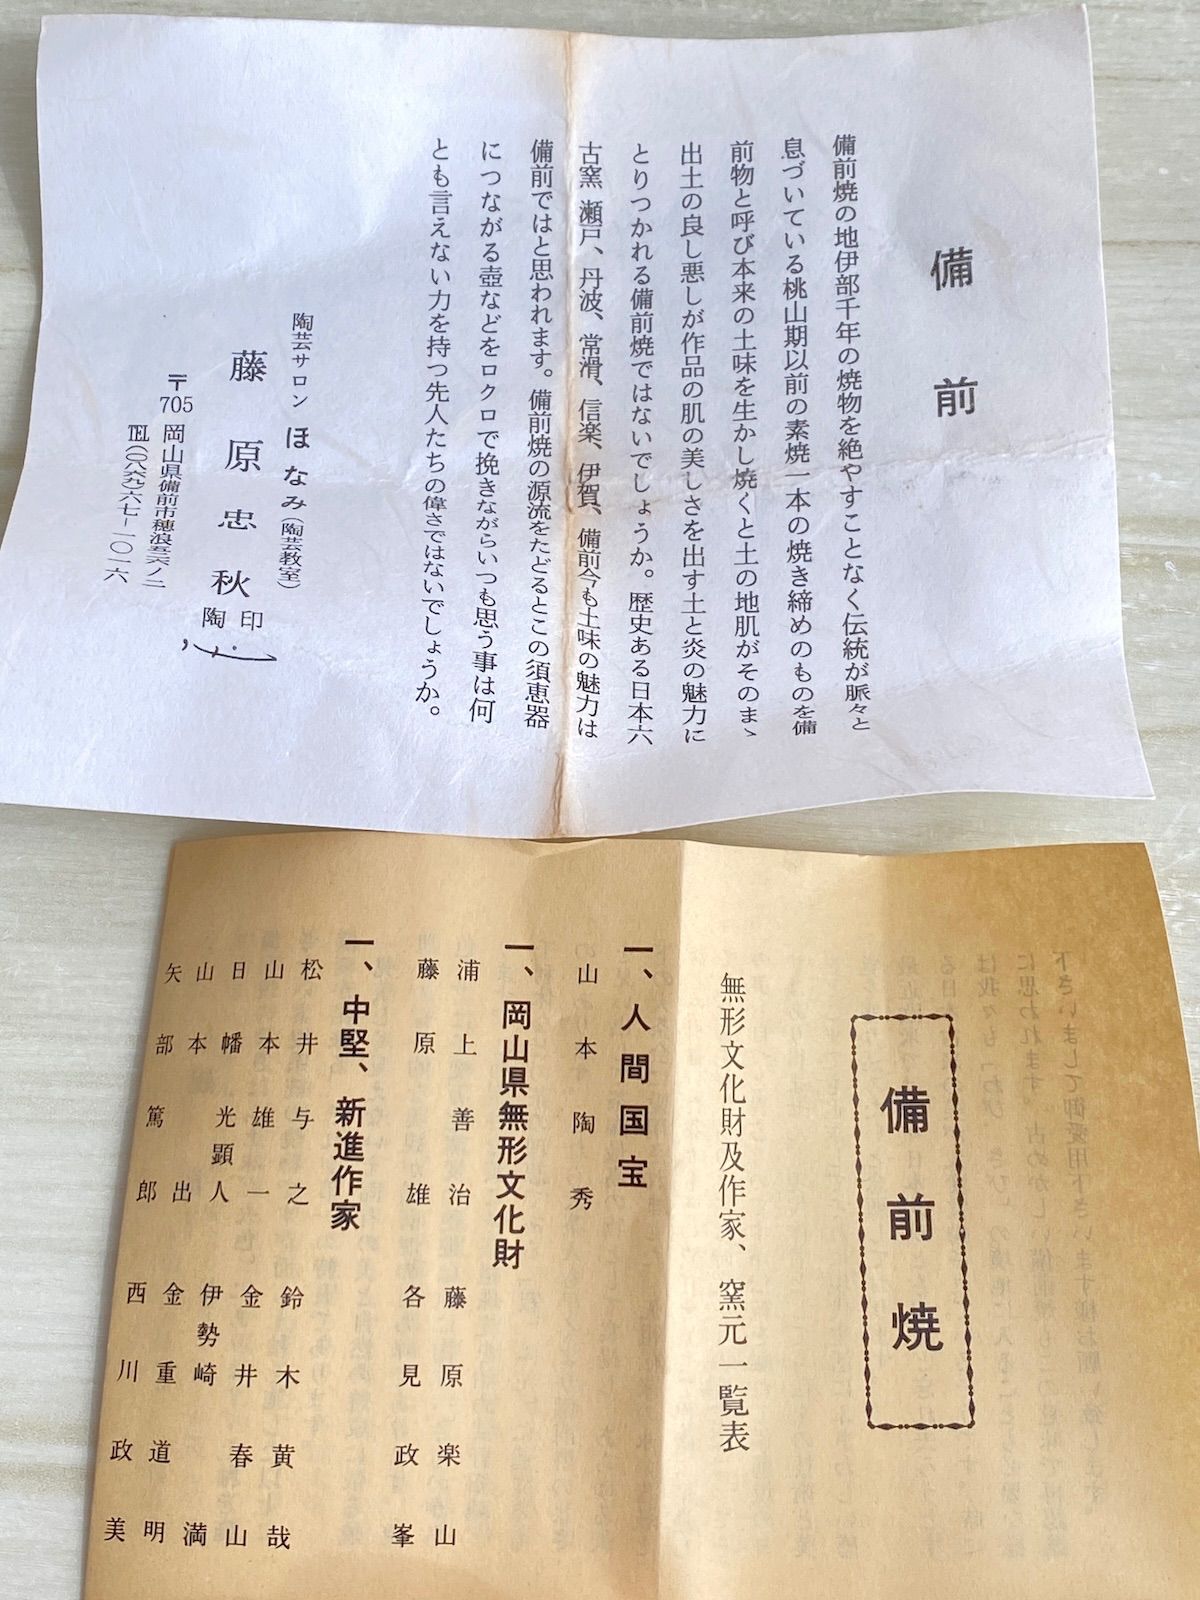 備前
備前焼の地伊部千年の焼物を絶やすことなく伝統が脈々と
息づいている桃山期以前の素焼一本の焼き締めのものを備
前物と呼び本来の土味を生かし焼くと土の地肌がそのまゝ
出土の良し悪しが作品の肌の美しさを出す土と炎の魅力に
とりつかれる備前焼ではないでしょうか。歴史ある日本六
古窯 瀬戸、丹波、常滑、信楽、伊賀、備前今も土味の魅力は
備前ではと思われます。備前焼の源流をたどるとこの須恵器
につながる壺などをロクロで挽きながらいつも思う事は何
とも言えない力を持つ先人たちの偉さではないでしょうか。
陶芸サロン ほなみ(陶芸教室)
藤原忠秋
陶印
〒705 岡山県備前市穂浪五六ノ二
TEL(〇八六九)六七-一〇一六
備前焼
無形文化財及作家、窯元一覧表
一、人間国宝
山本陶秀
一、岡山県無形文化財
浦上善治 藤原楽山
藤原雄 各見政峯
一、中堅、新進作家
松井与之 鈴木黄哉
山本雄一 金井春山
日幡光顕人 伊勢崎満
山本出 金重道明
矢部篤郎 西川政美